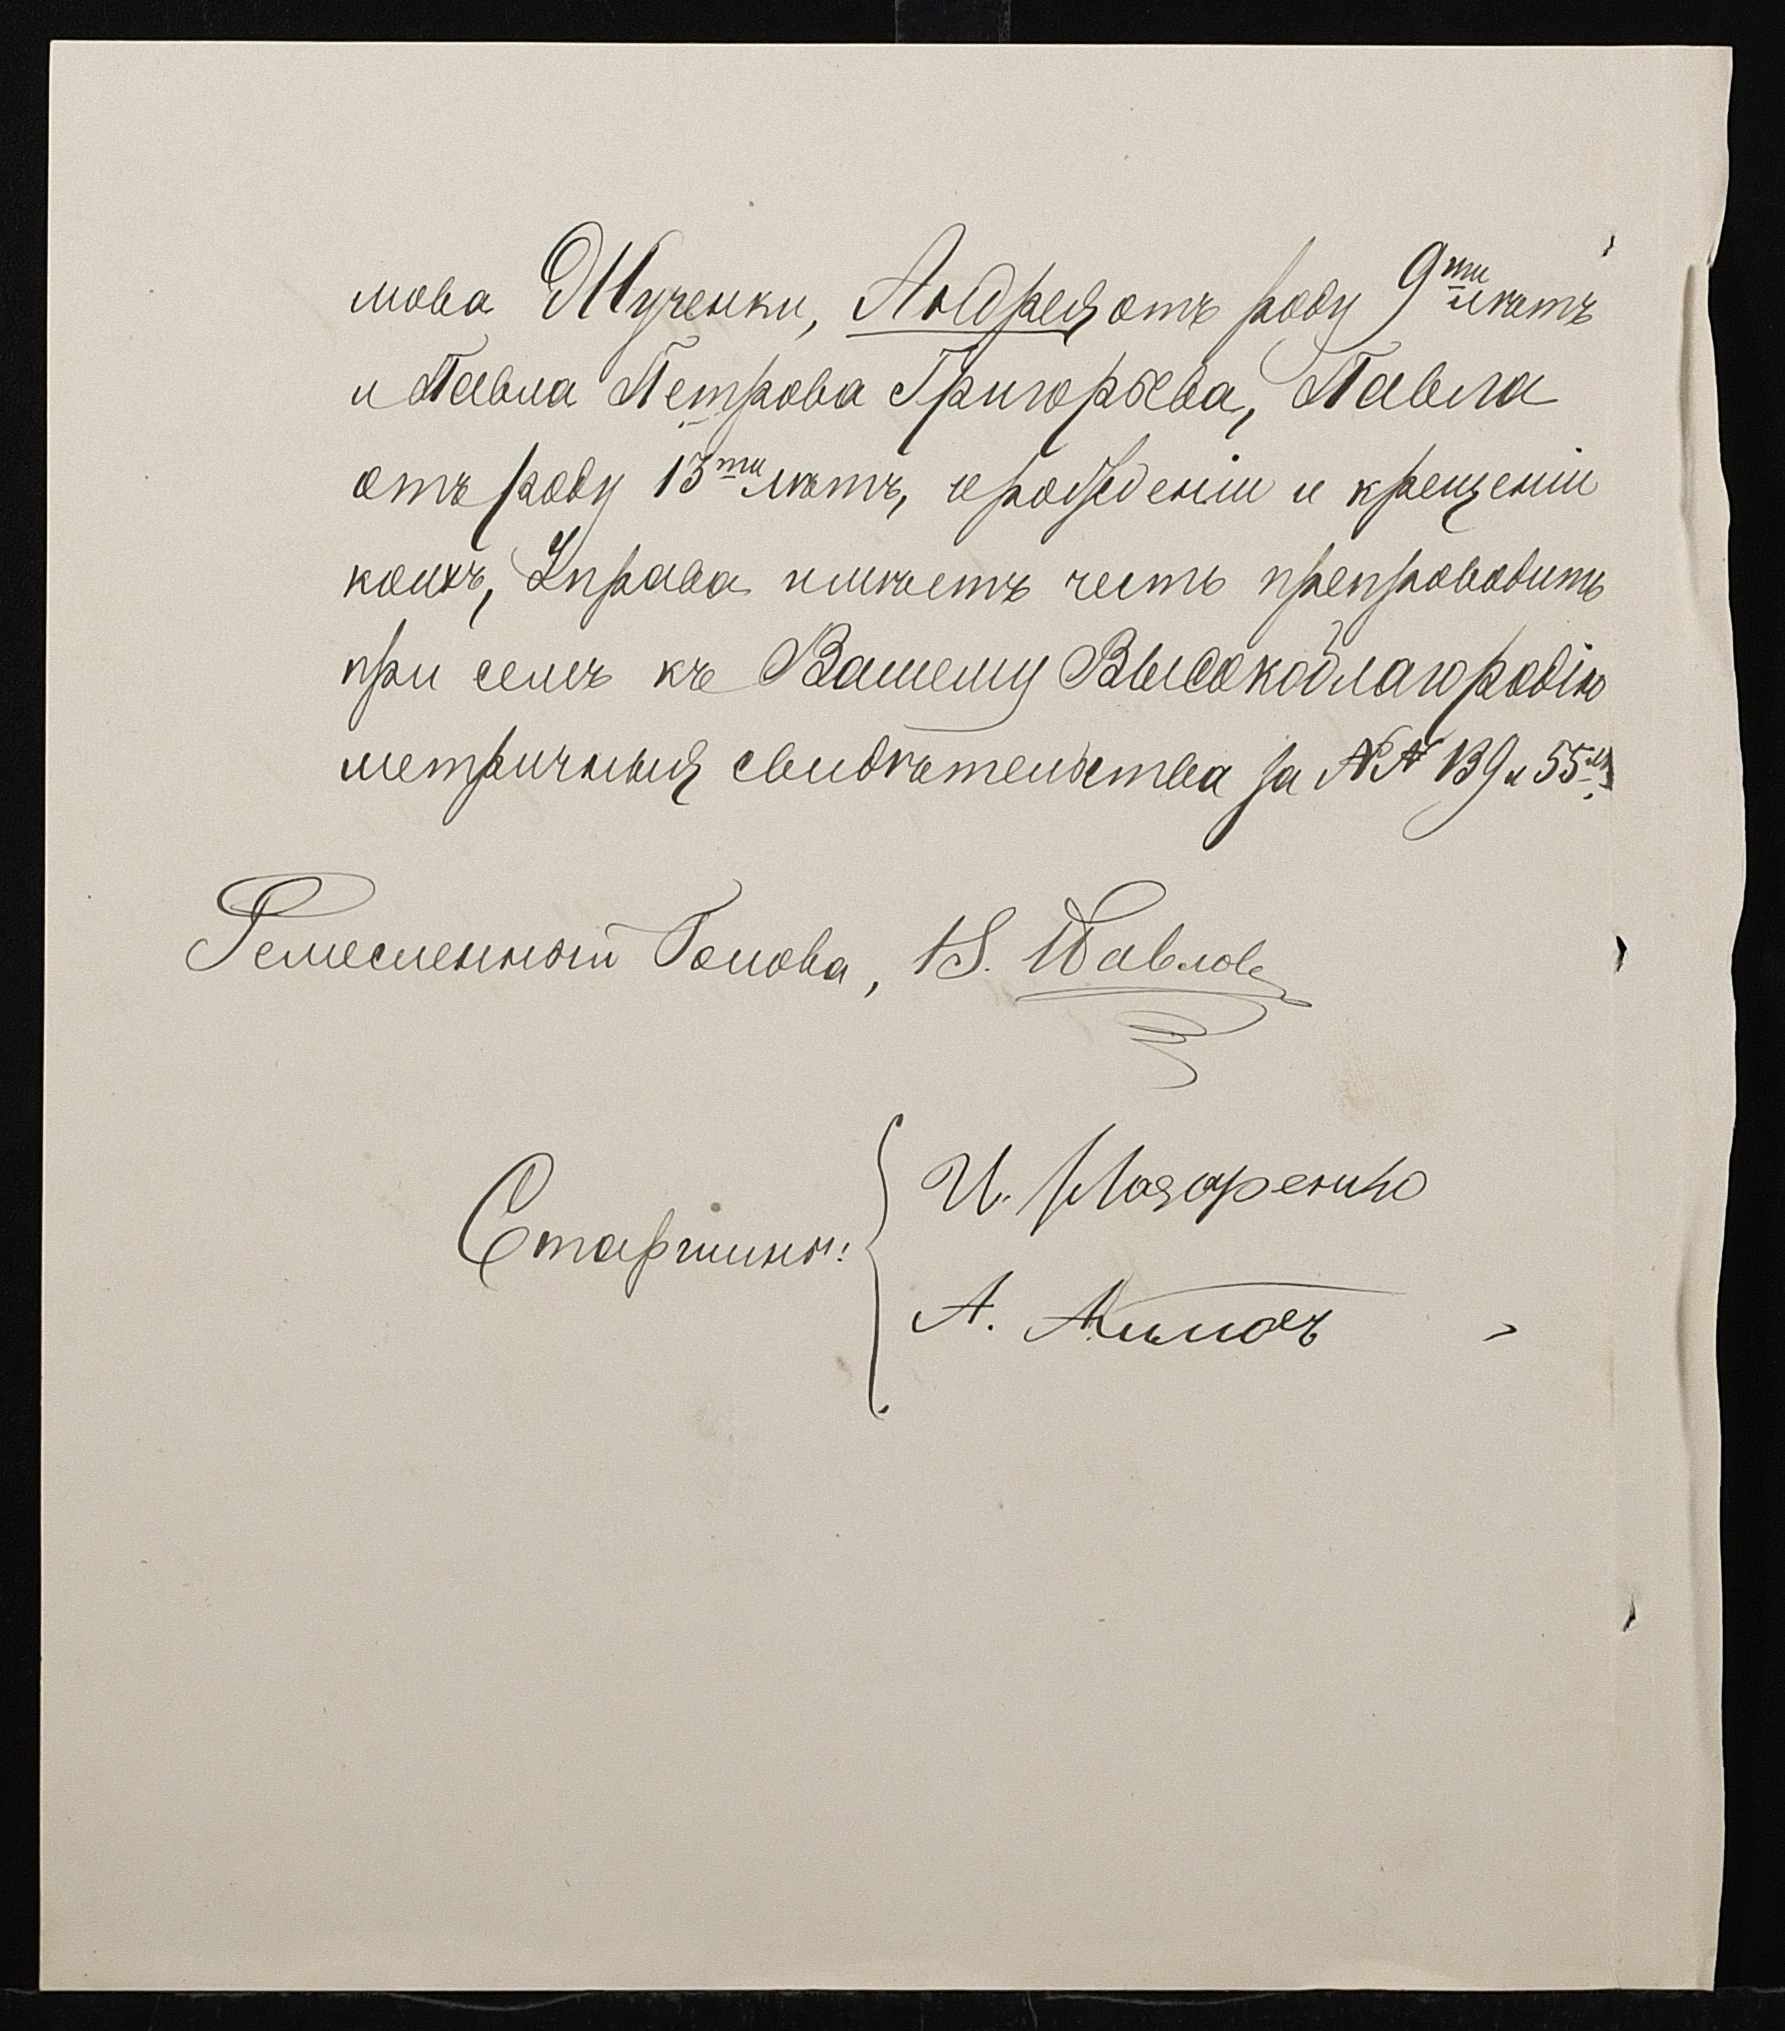 мова Жученки, Андрея отъ роду 9ти лѣтъ
и Павла Петрова Григорьева, Павла
отъ роду 13ти лѣтъ, о рожденіи и крещеніи
коихъ, Управа имѣетъ честь препроводить
при семъ къ Вашему Высокоблагородію
метричныя свидѣтельства за №№ 139 и 55мъ.
Ремесленный Голова, Павловъ
Старшины:
И. Назаренко
А. Акимовъ